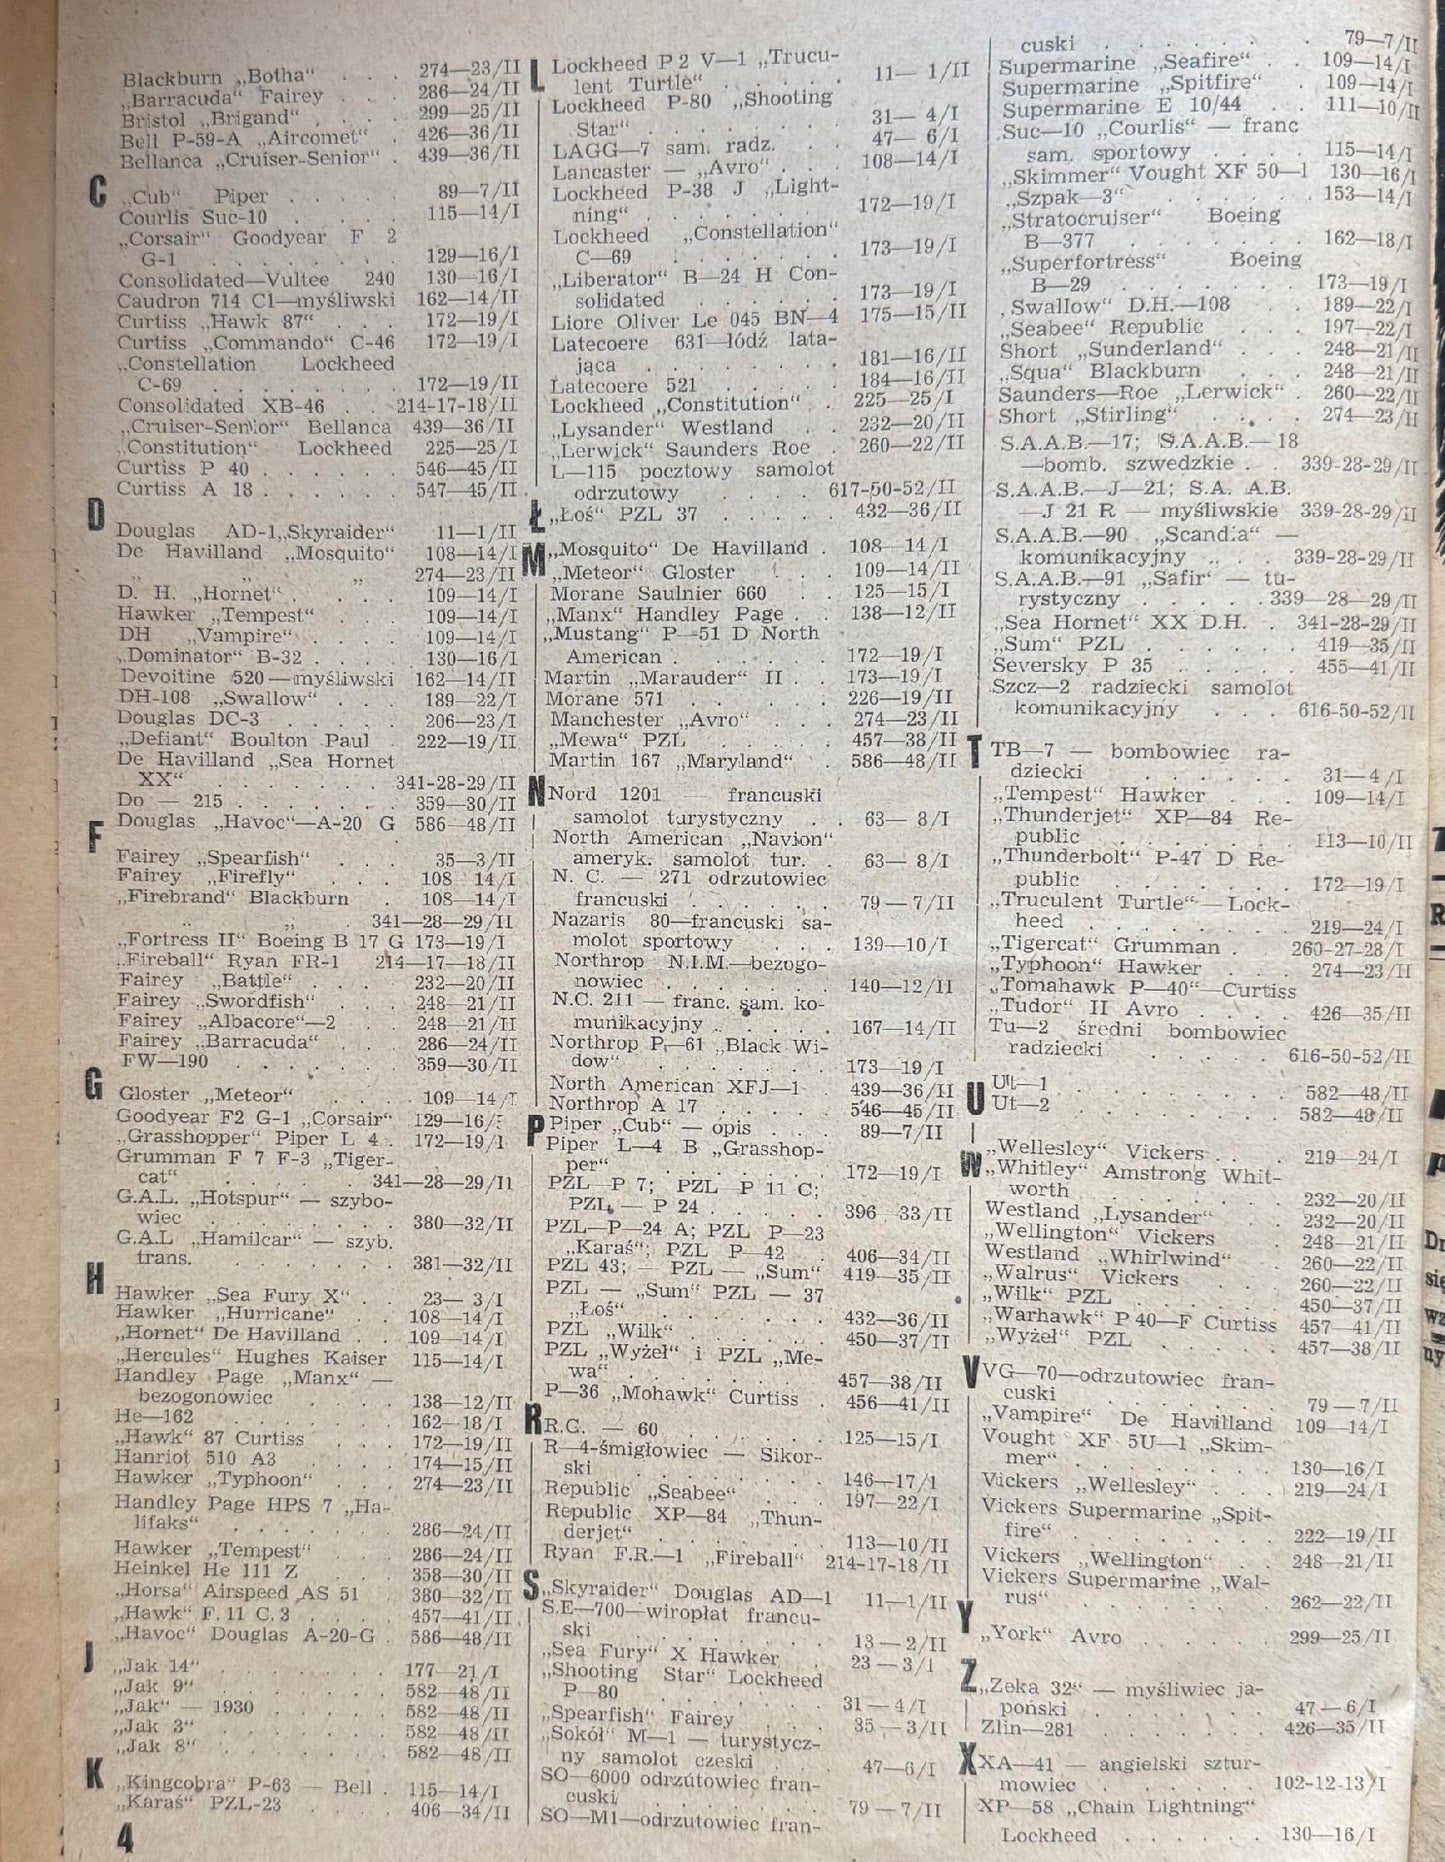 Blackburn „Botha“ . . . 274—23/II
„Barracuda“ Fairey . . . 286—24/II
Bristol „Brigand“ . . . . 299—25/II
Bell P-59-A „Aircomet“ . 426—36/II
Bellanca „Cruiser-Senior“ . 439—36/II
C
„Cub“ Piper . . . . 89—7/II
Courlis Suc-10 . . . . 115—14/I
„Corsair“ Goodyear F 2
G-1 . . . . . . . . 129—16/I
Consolidated—Vultee 240 130—16/I
Caudron 714 C1—myśliwski 162—14/II
Curtiss „Hawk 87“ . . . 172—19/I
Curtiss „Commando“ C-46 172—19/I
„Constellation Lockheed
C-69 . . . . . . . . 172—19/II
Consolidated XB-46 . . 214-17-18/II
„Cruiser-Senior“ Bellanca 439—36/II
„Constitution“ Lockheed 225—25/I
Curtiss P 40 . . . . . . 546—45/II
Curtiss A 18 . . . . . . 547—45/II
D
Douglas AD-1„Skyraider“ 11—1/II
De Havilland „Mosquito“ 108—14/I
„ „ „ 274—23/II
D. H. „Hornet“ . . . . 109—14/I
Hawker „Tempest“ . . . 109—14/I
DH „Vampire“ . . . . 109—14/I
„Dominator“ B-32 . . . . 130—16/I
Devoitine 520—myśliwski 162—14/II
DH-108 „Swallow“ . . . 189—22/I
Douglas DC-3 . . . . . 206—23/I
„Defiant“ Boulton Paul . 222—19/II
De Havilland „Sea Hornet
XX“ . . . . . . . 341-28-29/II
Do — 215 . . . . . . . 359—30/II
Douglas „Havoc“—A-20 G 586—48/II
F
Fairey „Spearfish“ . . . 35—3/II
Fairey „Firefly“ . . . 108—14/I
„Firebrand“ Blackburn . 108—14/I
„ „ 341—28—29/II
„Fortress II“ Boeing B 17 G 173—19/I
„Fireball“ Ryan FR-1 214—17—18/II
Fairey „Battle“ . . . . 232—20/II
Fairey „Swordfish“ . . . 248—21/II
Fairey „Albacore“—2 . . 248—21/II
Fairey „Barracuda“ . . . 286—24/II
FW—190 . . . . . . . 359—30/II
G
Gloster „Meteor“ . . . . 109—14/I
Goodyear F2 G-1 „Corsair“ 129—16/
„Grasshopper“ Piper L 4 . 172—19/I
Grumman F 7 F-3 „Tiger-
cat“ . . . . . 341—28—29/II
G.A.L. „Hotspur“ — szybo-
wiec . . . . . . . . 380—32/II
G.A.L „Hamilcar“ — szyb.
trans. . . . . . . . 381—32/II
H
Hawker „Sea Fury X“ . . 23— 3/I
Hawker „Hurricane“ . . 108—14/I
„Hornet“ De Havilland . . 109—14/I
„Hercules“ Hughes Kaiser 115—14/I
Handley Page „Manx“ —
bezogonowiec . . . . 138—12/II
He—162 . . . . . . 162—18/I
„Hawk“ 87 Curtiss . . . 172—19/II
Hanriot 510 A3 . . . . 174—15/II
Hawker „Typhoon“ . . . 274—23/II
Handley Page HPS 7 „Ha-
lifaks“ . . . . . . . 286—24/II
Hawker „Tempest“ . . . 286—24/II
Heinkel He 111 Z . . . 358—30/II
„Horsa“ Airspeed AS 51 . 380—32/II
„Hawk“ F. 11 C. 3 . . . . 457—41/II
„Havoc“ Douglas A-20-G . 586—48/II
J
„Jak 14“ . . . . . . . 177—21/I
„Jak 9“ . . . . . . . 582—48/II
„Jak“ — 1930 . . . . . 582—48/II
„Jak 3“ . . . . . . . 582—48/II
„Jak 8“ . . . . . . . 582—48/II
K
„Kingcobra“ P-63 — Bell . 115—14/I
„Karaś“ PZL-23 . . . . 406—34/II
4
L
Lockheed P 2 V—1 „Trucu-
lent Turtle“ . . . . . 11— 1/II
Lockheed P-80 „Shooting
Star“ . . . . . . . . 31— 4/I
LAGG—7 sam. radz. . . 47— 6/I
Lancaster — „Avro“ . . . 108—14/I
Lockheed P-38 J „Light-
ning“ . . . . . . . 172—19/I
Lockheed „Constellation“
C—69 . . . . . . . 173—19/I
„Liberator“ B—24 H Con-
solidated . . . . . . 173—19/I
Liore Oliver Le 045 BN—4 175—15/II
Latecoere 631—łódź lata-
jąca . . . . . . . . 181—16/II
Latecoere 521 . . . . . 184—16/II
Lockheed „Constitution“ . 225—25/I
„Lysander“ Westland . . 232—20/II
„Lerwick“ Saunders Roe . 260—22/II
L—115 pocztowy samolot
odrzutowy . . . . 617-50-52/II
Ł
„Łoś“ PZL 37 . . . . . 432—36/II
M
„Mosquito“ De Havilland . 108—14/I
„Meteor“ Gloster . . . 109—14/II
Morane Saulnier 660 . . 125—15/I
„Manx“ Handley Page . . 138—12/II
„Mustang“ P—51 D North
American . . . . . . . 172—19/I
Martin „Marauder“ II . . 173—19/I
Morane 571 . . . . . 226—19/II
Manchester „Avro“ . . . 274—23/II
„Mewa“ PZL . . . . . 457—38/II
Martin 167 „Maryland“ . 586—48/II
N
Nord 1201 — francuski
samolot turystyczny . . 63— 8/I
North American „Navion“
ameryk. samolot tur. . 63— 8/I
N. C. — 271 odrzutowiec
francuski . . . . . . 79 — 7/II
Nazaris 80—francuski sa-
molot sportowy . . . 139—10/I
Northrop N.I.M.—bezogo-
nowiec . . . . . . . 140—12/II
N.C. 211 — franc. sam. ko-
munikacyjny . . . . . 167—14/II
Northrop P—61 „Black Wi-
dow“ . . . . . . . . 173—19/I
North American XFJ—1 439—36/II
Northrop A 17 . . . . . 546—45/II
P
Piper „Cub“ — opis . . . 89—7/II
Piper L—4 B „Grasshop-
per“ . . . . . . . . 172—19/I
PZL—P 7; PZL—P 11 C;
PZL — P 24 . . . . . 396—33/II
PZL—P—24 A; PZL P—23
„Karaś“; PZL P—42 . 406—34/II
PZL 43; — PZL — „Sum“ 419—35/II
PZL — „Sum“ PZL — 37
„Łoś“ . . . . . . . . 432—36/II
PZL „Wilk“ . . . . . . 450—37/II
PZL „Wyżeł“ i PZL „Me-
wa“ . . . . . . . . 457—38/II
P—36 „Mohawk“ Curtiss . 456—41/II
R
R.G. — 60 . . . . . . 125—15/I
R—4-śmigłowiec — Sikor-
ski . . . . . . . . 146—17/I
Republic „Seabee“ . . . 197—22/I
Republic XP—84 „Thun-
derjet“ . . . . . . . 113—10/II
Ryan F.R.—1 „Fireball“ 214-17-18/II
S
„Skyraider“ Douglas AD—1 11—1/II
S.E—700—wiropłat francu-
ski . . . . . . . . 13—2/II
„Sea Fury“ X Hawker . 23—3/I
„Shooting Star“ Lockheed
P—80 . . . . . . . 31—4/I
„Spearfish“ Fairey . . . 35—3/II
„Sokół“ M—1 — turystycz-
ny samolot czeski . . . 47—6/I
SO—6000 odrzutowiec fran-
cuski . . . . . . . 79—7/II
SO—M1—odrzutowiec fran-
cuski . . . . . . . 79—7/II
Supermarine „Seafire“ . . 109—14/I
Supermarine „Spitfire“ . 109—14/I
Supermarine E 10/44 . . 111—10/II
Suc—10 „Courlis“ — franc
sam. sportowy . . . . 115—14/I
„Skimmer“ Vought XF 50—1 130—16/I
„Szpak—3“ . . . . . . 153—14/I
„Stratocruiser“ Boeing
B—377 . . . . . . . 162—18/I
„Superfortress“ Boeing
B—29 . . . . . . . 173—19/I
„Swallow“ D.H.—108 . 189—22/I
„Seabee“ Republic . . . 197—22/I
Short „Sunderland“ . . . 248—21/II
„Squa“ Blackburn . . . 248—21/II
Saunders—Roe „Lerwick“ . 260—22/II
Short „Stirling“ . . . . 274—23/II
S.A.A.B.—17; S.A.A.B.—18
—bomb. szwedzkie . . 339-28-29/II
S.A.A.B.—J—21; S.A. A.B.
—J 21 R — myśliwskie 339-28-29/II
S.A.A.B.—90 „Scandia“ —
komunikacyjny . . . 339-28-29/II
S.A.A.B.—91 „Safir“ — tu-
rystyczny . . . . . 339—28—29/II
„Sea Hornet“ XX D.H. . 341-28-29/II
„Sum“ PZL . . . . . . 419—35/II
Seversky P 35 . . . . . 455—41/II
Szcz—2 radziecki samolot
komunikacyjny . . . 616-50-52/II
T
TB—7 — bombowiec ra-
dziecki . . . . . . 31— 4/I
„Tempest“ Hawker . . . 109—14/I
„Thunderjet“ XP—84 Re-
public . . . . . . . 113—10/II
„Thunderbolt“ P-47 D Re-
public . . . . . . . 172—19/I
„Truculent Turtle“—Lock-
heed . . . . . . . . 219—24/I
„Tigercat“ Grumman . 260-27-28/I
„Typhoon“ Hawker . . . 274—23/II
„Tomahawk P—40“—Curtiss
„Tudor“ II Avro . . . . 426—35/II
Tu—2 średni bombowiec
radziecki . . . . . 616-50-52/II
U
Ut—1 . . . . . . . . 582—48/II
Ut—2 . . . . . . . . 582—48/II
W
„Wellesley“ Vickers . . . 219—24/I
„Whitley“ Amstrong Whit-
worth . . . . . . . 232—20/II
Westland „Lysander“ . . 232—20/II
„Wellington“ Vickers . . 248—21/II
Westland „Whirlwind“ . 260—22/II
„Walrus“ Vickers . . . 260—22/II
„Wilk“ PZL . . . . . . 450—37/II
„Warhawk“ P 40—F Curtiss 457—41/II
„Wyżeł“ PZL . . . . . 457—38/II
V
VG—70—odrzutowiec fran-
cuski . . . . . . . 79—7/II
„Vampire“ De Havilland 109—14/I
Vought XF 5U—1 „Skim-
mer“ . . . . . . . . 130—16/I
Vickers „Wellesley“ . . . 219—24/I
Vickers Supermarine „Spit-
fire“ . . . . . . . . 222—19/II
Vickers „Wellington“ . . 248—21/II
Vickers Supermarine „Wal-
rus“ . . . . . . . . 262—22/II
Y
„York“ Avro . . . . . 299—25/II
Z
„Zeka 32“ — myśliwiec ja-
poński . . . . . . . 47—6/I
Zlin—281 . . . . . . 426—35/II
X
XA—41 — angielski sztur-
mowiec . . . . . . 102-12-13/I
XP—58 „Chain Lightning“
Lockheed . . . . . 130—16/I